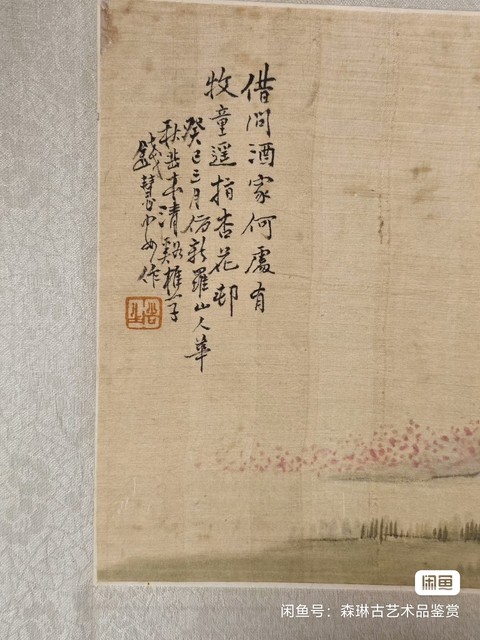 借问酒家何處有
牧童遥指杏花邨
癸巳三月仿新羅山人華
秋岳本清谿樵子
錢慧安作
闲鱼
闲鱼号：森琳古艺术品鉴赏